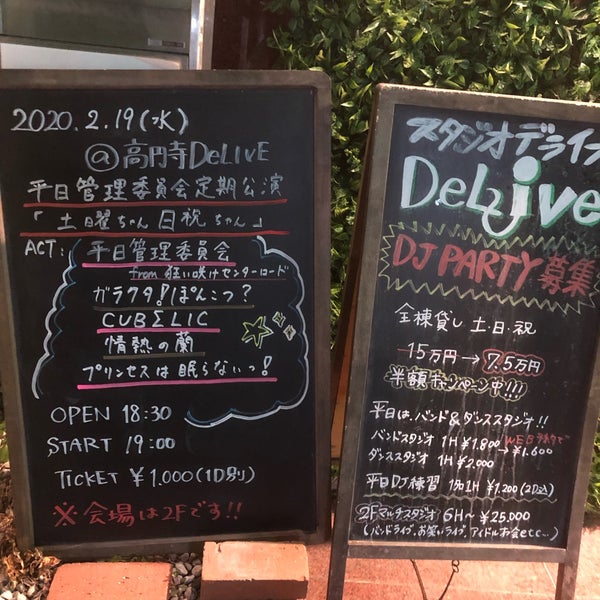 2020.2.19(水)
@高円寺DeLiVE
平日管理委員会定期公演
「土曜ちゃん日祝ちゃん」
ACT: 平日管理委員会
from 狂い咲けセンターロード
ガラクタ!ぽんこつ?
CUBΣLIC
情熱の蘭
プリンセスは眠らないっ!
OPEN 18:30
START 19:00
TICKET ¥1,000(1D別)
※会場は2Fです!!
スタジオデライブ
DeLive
DJ PARTY 募集
全棟貸し 土・日・祝
15万円→7.5万円
半額キャンペーン中!!!
平日は、バンド&ダンススタジオ!!
バンドスタジオ 1H ¥1,800 WEB予約で
→¥1,600
ダンススタジオ 1H ¥2,000
平日DJ練習 1H ¥1,200(2D込)
2Fマルチスタジオ 6H〜 ¥25,000
(バンドライブ、お笑いライブ、アイドルお会etc…)